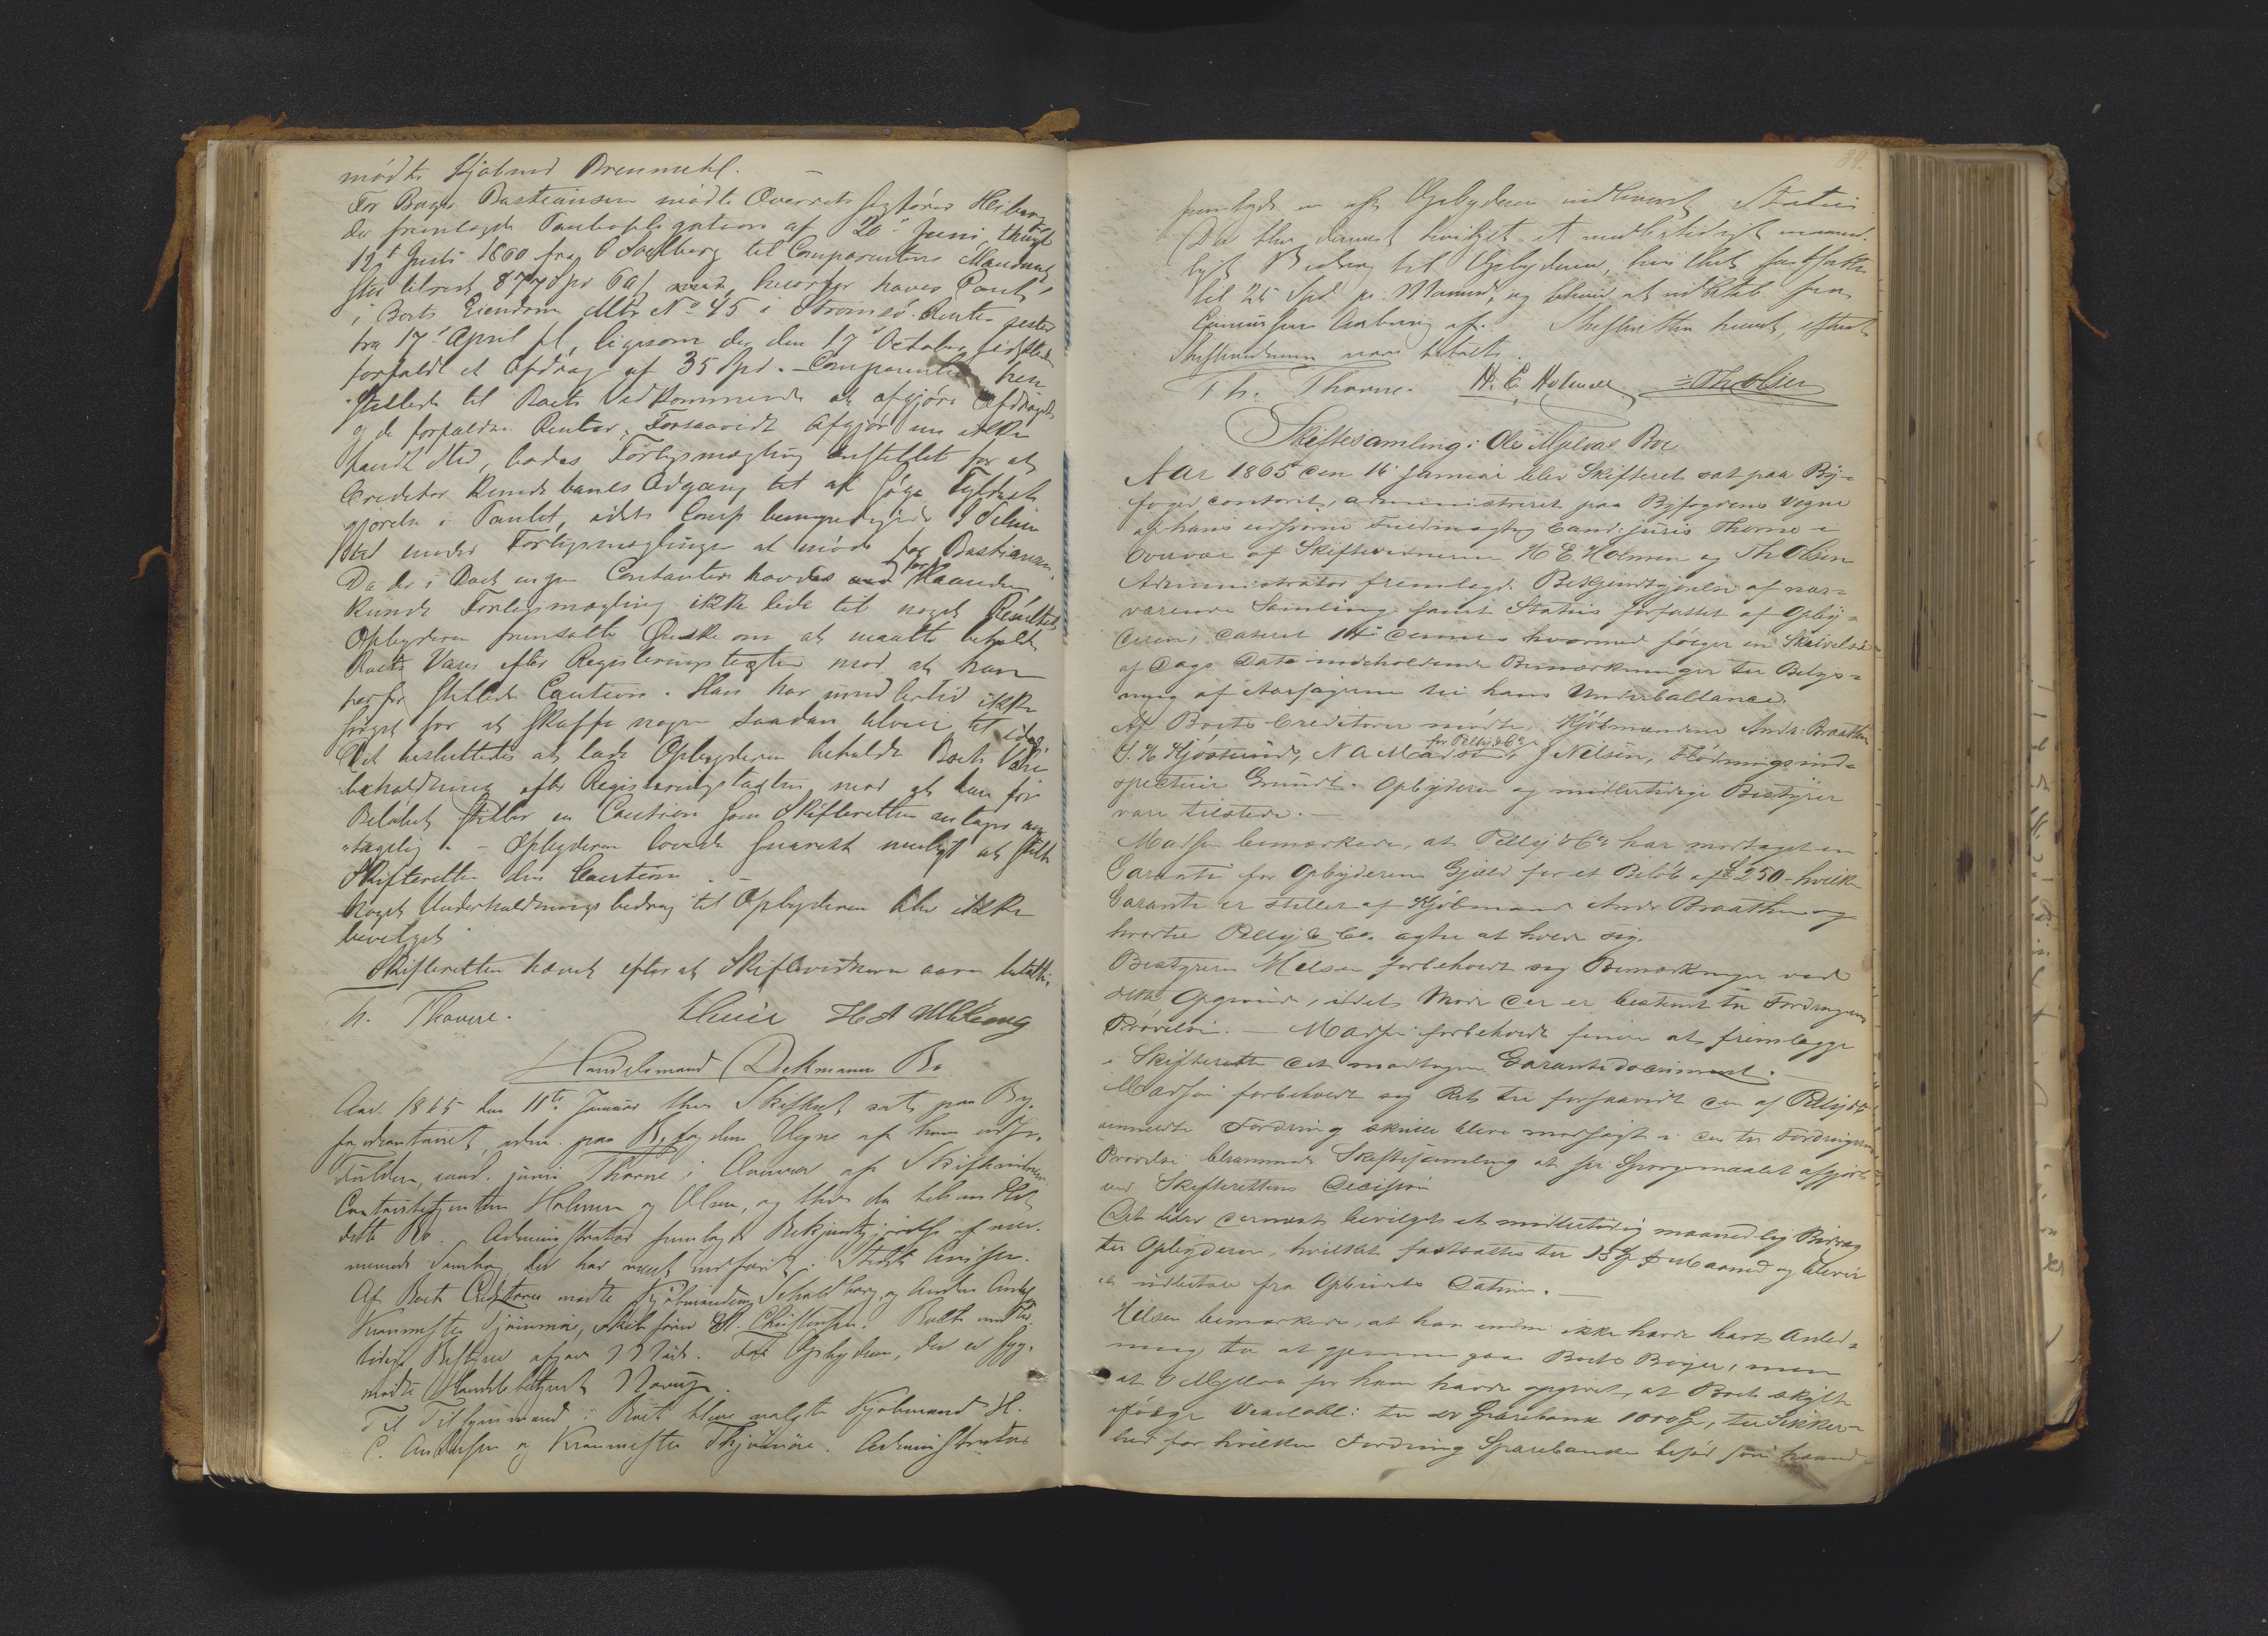 mødte Kjøbmd Brenmehl. —
For Bager Bastiansen mødte Overretssagfører Heiberg
der fremlagde Pantobligation af 20de Juni, thingl.
12te Juli 1860 fra O Solberg til Comparentens Mandant
stor tilrest 877 Spd 60 s, hvorfor haves Pant
i Boets Eiendom Mtr No 45 i Strømsø. Renter rester
fra 17de April f. ligesom der den 17de October sidstleden
forfaldt et Afdrag af 35 Spd. – Comparenten hen
stillede til Boets Vedkommende at afgjøre Afdraget
og de forfaldne Renter. Forsaavidt Afgjørelse ikke
fandt Sted, bades Forligsmægling anstillet for at
Creditor kunde banes Adgang til at søge Fyldest
gjørelse i Pantet, idet Comp bemyndigede
ved under Forligsmæglingen at møde for Bastiansen.
Da der i Boet ingen Contanter havdes for Haanden
kunde Forligsmægling ikke lede til noget Resultat
Opbyderen fremsatte Ønske om at maatte beholde
Boets Varer efter Registreringstaxten mod at han
herfor stillede Caution. Han har imidlertid ikke
sørget for at skaffe nogen saadan tilveie til idag
Det besluttedes at lade Opbyderen beholde Boets Vare
beholdning efter Registreringstaxten mod at han for
Beløbet stiller en Caution som Skifteretten antager an
tagelig. – Opbyderen lovede snarest muligt at stille
Skifteretten den Caution. –
Noget Underholdningsbidrag til Opbyderen blev ikke
bevilget
Skifteretten hævet efter at Skiftevidnerne vare betalte.
Th. Thorne. H A
Handelsmand Dekmanns Bo.
Aar 1865 den 11te Januar blev Skifteret sat paa By-
fogedcontoiret, adm. paa Byfogdens Vegne af hans edsv.
Fuldm, cand. juris Thorne i Overvær af Skiftevidnerne
Contoirbetjentene Holmen og Olsen, og blev da behandlet
dette Bo. Administrator fremlagde Bekjendtgjørelse af nær-
værende Samling der har været indført i Stedets Aviser.
Af Boets Creditorer mødte Kjøbmændene Schultberg og Anders
Kranmester Tjømøe, Skibsfører Chr. Christensen. Boets midler
tidige Bestyrer afgav Møde. For Opbyderen, der er syg,
mødte Handelsbetjent
Til Tilsynsmænd i Boet bleve valgte Kjøbmand H.
C. Andersen og Kranmester Tjømøe. Administrator
39.
fremlagde en af Opbyderen indleveret Status
Der blev dernæst bevilget et midlertidigt maaned-
ligt Bidrag til Opbyderen, hvilket fastsattes
til 25 Spd pr. Maaned, og bliver at udbetale fra
Concursens Aabning af. Skifteretten hævet, efterat
Skiftevidnerne vare betalte.
Th. Thorne. H. E. Holmen Th Olsen
Skiftesamling i Ole Myhras Boe
Aar 1865 den 16 Januar blev Skifteret sat paa By-
fogedcontoret, administreret paa Byfogdens Vegne
af hans edsvorne Fuldmægtig Cand: juris Thorne i
Overvær af Skiftevidnerne H E Holmen og Th Olsen
Administrator fremlagde Bekjendtgjørelse af nær-
værende Samling samt Status forfattet af Opby-
deren, dateret 14 dennes hvormed følger en Skrivelse
af Dags Dato indeholdende Bemærkninger til Belys-
ning af Aarsagerne til hans Underballance.
Af Boets Creditorer mødte Kjøbmændene Andr: Braathen
S. H Kjøsterud, N A Madsen for Pelly & Co, J Nelsen, Flødningsind-
specteur Grundt. Opbyderen og midlertidige Bestyrer
vare tilstede. —
Madsen bemærkede, at Pelly & Co har modtaget en
Garanti for Opbyderens Gjæld for et Beløb af £ 250 – hvilken
Garanti er stillet af Kjøbmand Andr Braathen og
hvortil Pelly & Co. agte at holde sig.
Bestyrer Nelsen forbeholdt sig Bemærkninger ved
dette Opgivende, i det Møde der er bestemt til Fordringers
Prøvelse. — Madsen forbeholdt senere at fremlægge
i Skifteretten det modtagne Garantidocument. —
Madsen forbeholdt sig Ret til forsaavidt den af Pelly & Co
anmeldte Fordring skulle blive modsagt i den til Fordringernes
Prøvelse berammede Skiftesamling at faa Spørgsmaalet afgjort
ved Skifterettens Decision
Det blev dernæst bevilget et midlertidig maanedlig Bidrag
til Opbyderen, hvilket fastsattes til 15 Spd pr Maaned og bliver
at udbetale fra Opbudets Datum. —
Nelsen bemærkede, at han endnu ikke havde havt Anled-
ning til at gjennemgaa Boets Bøger, men
at O Myhra for ham havde opgivet, at Boet skyldte
ifølge Vexelobl: til Sparebank 1000 Spd, til Sikker-
hed for hvilken Fordring Sparebanken besad som haand-